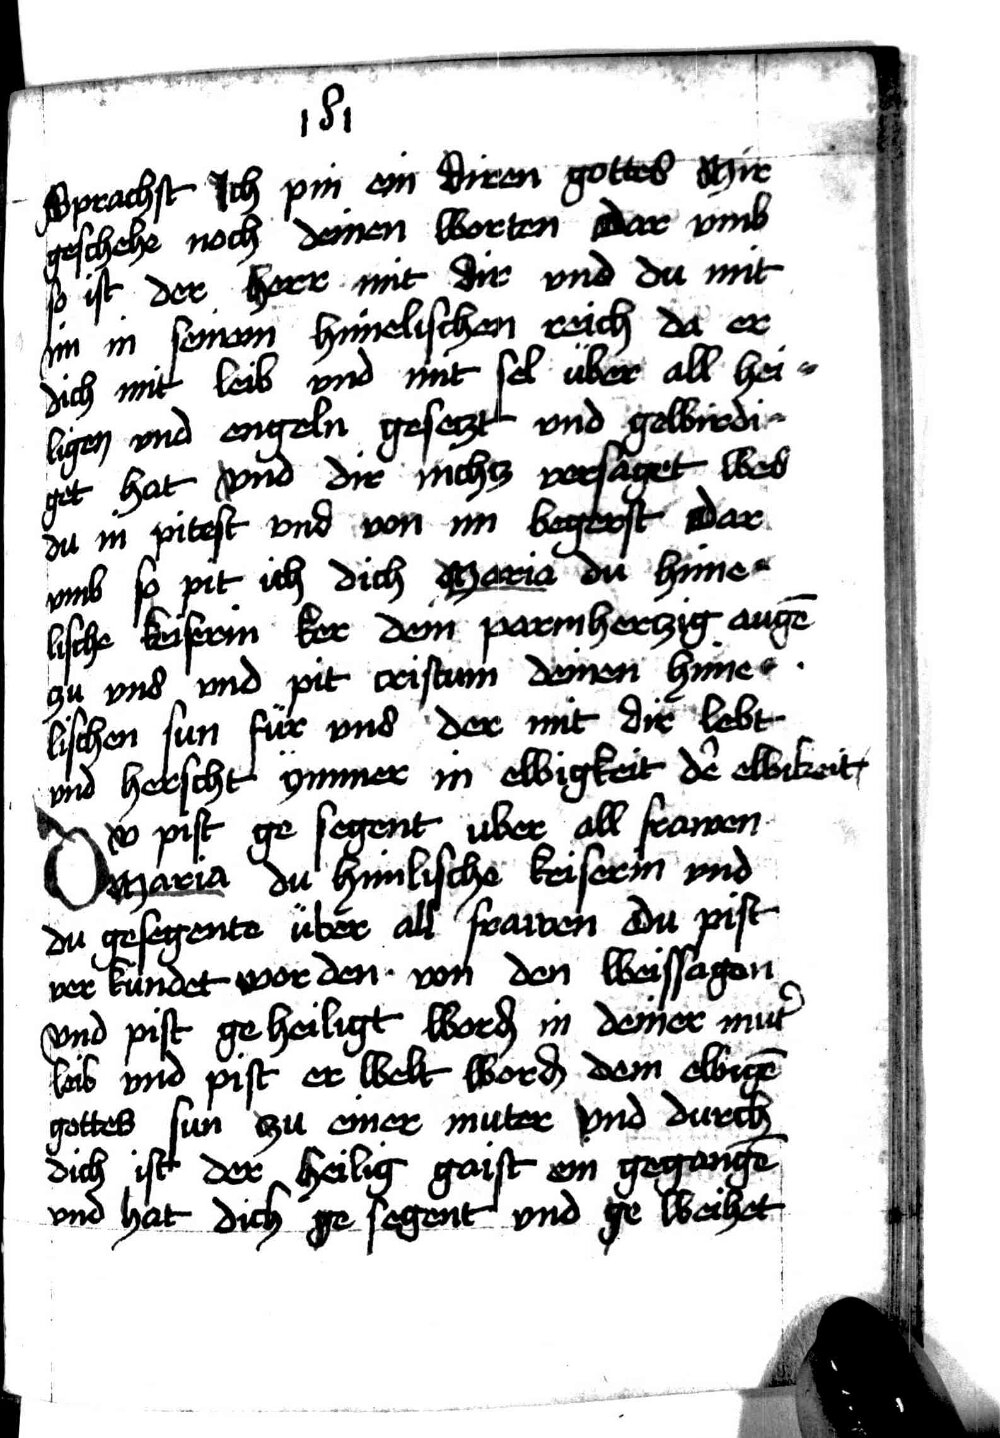 181
Sprachst Ich pin ein diren gottes Mir
geschehe noch deinen worten Dar vmb
so ist der herr mit dir vnd du mit
im in seinem himelischen reich da er
dich mit leib vnd mit sel über all hei-
ligen vnd engeln gesetzt vnd gewirdi-
get hat Vnd dir nichtz versaget wes
du in pitest vnd von im begerst Dar
vmb so pit ich dich Maria du hime-
lische keiserin ker dein parmhertzig augē
zu vns vnd pit cristum deinen hime-
lischen sun für vns der mit dir lebt
vnd herscht ymmer in ewigkeit dē ewikeit
Dv pist ge segent uber all frawen
Maria du himlische keiserin vnd
du gesegente über all frawen Du pist
ver kundet worden von den weissagen
Vnd pist ge heiligt word̄ in deiner mut̄
leib vnd pist er welt word̄ dem ewigē
gottes sun zu einer muter Vnd durch
dich ist der heilig gaist ein gegangē
vnd hat dich ge segent vnd ge weihet